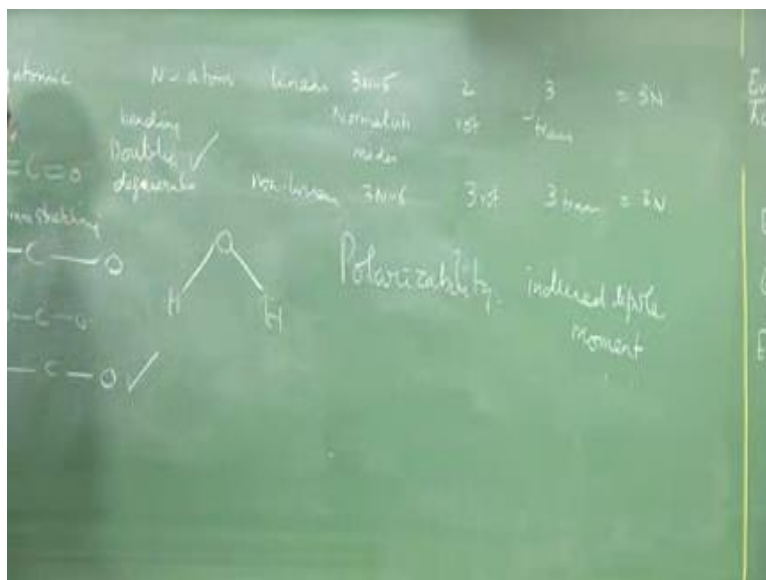 N - atom linear 3N-5 2 3 = 3N
bending Normal rot tran
Doubly ✓ modes
=C=O degenerate Non-linear 3N-6 3 rot 3 tran = 3N
stretching
- C - O
O
H H
Polarizability induced dipole
moment
- C - O
- C - O ✓